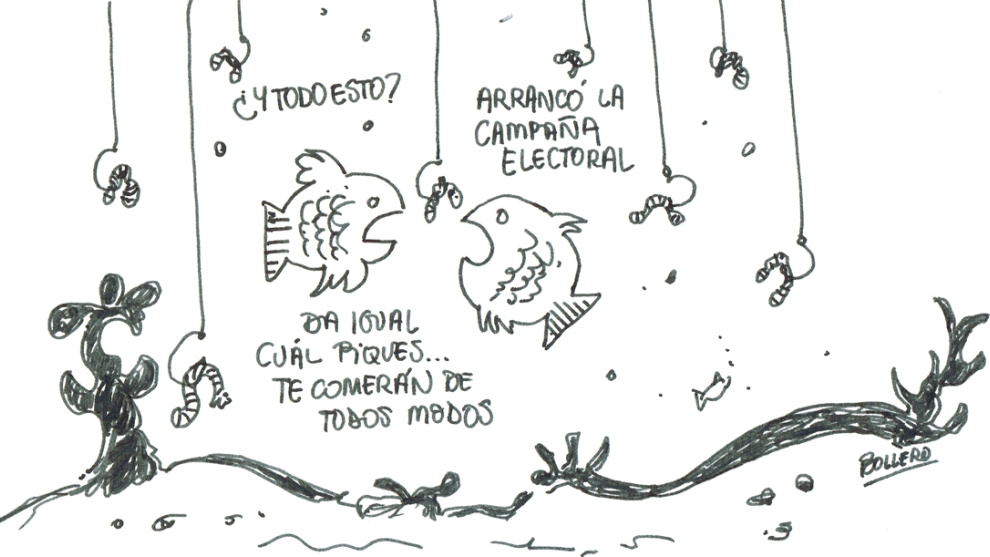 ¿Y TODO ESTO?
ARRANCÓ LA
CAMPAÑA
ELECTORAL
DA IGUAL
CUÁL PIQUES...
TE COMERÁN DE
TODOS MODOS
BOLLERO